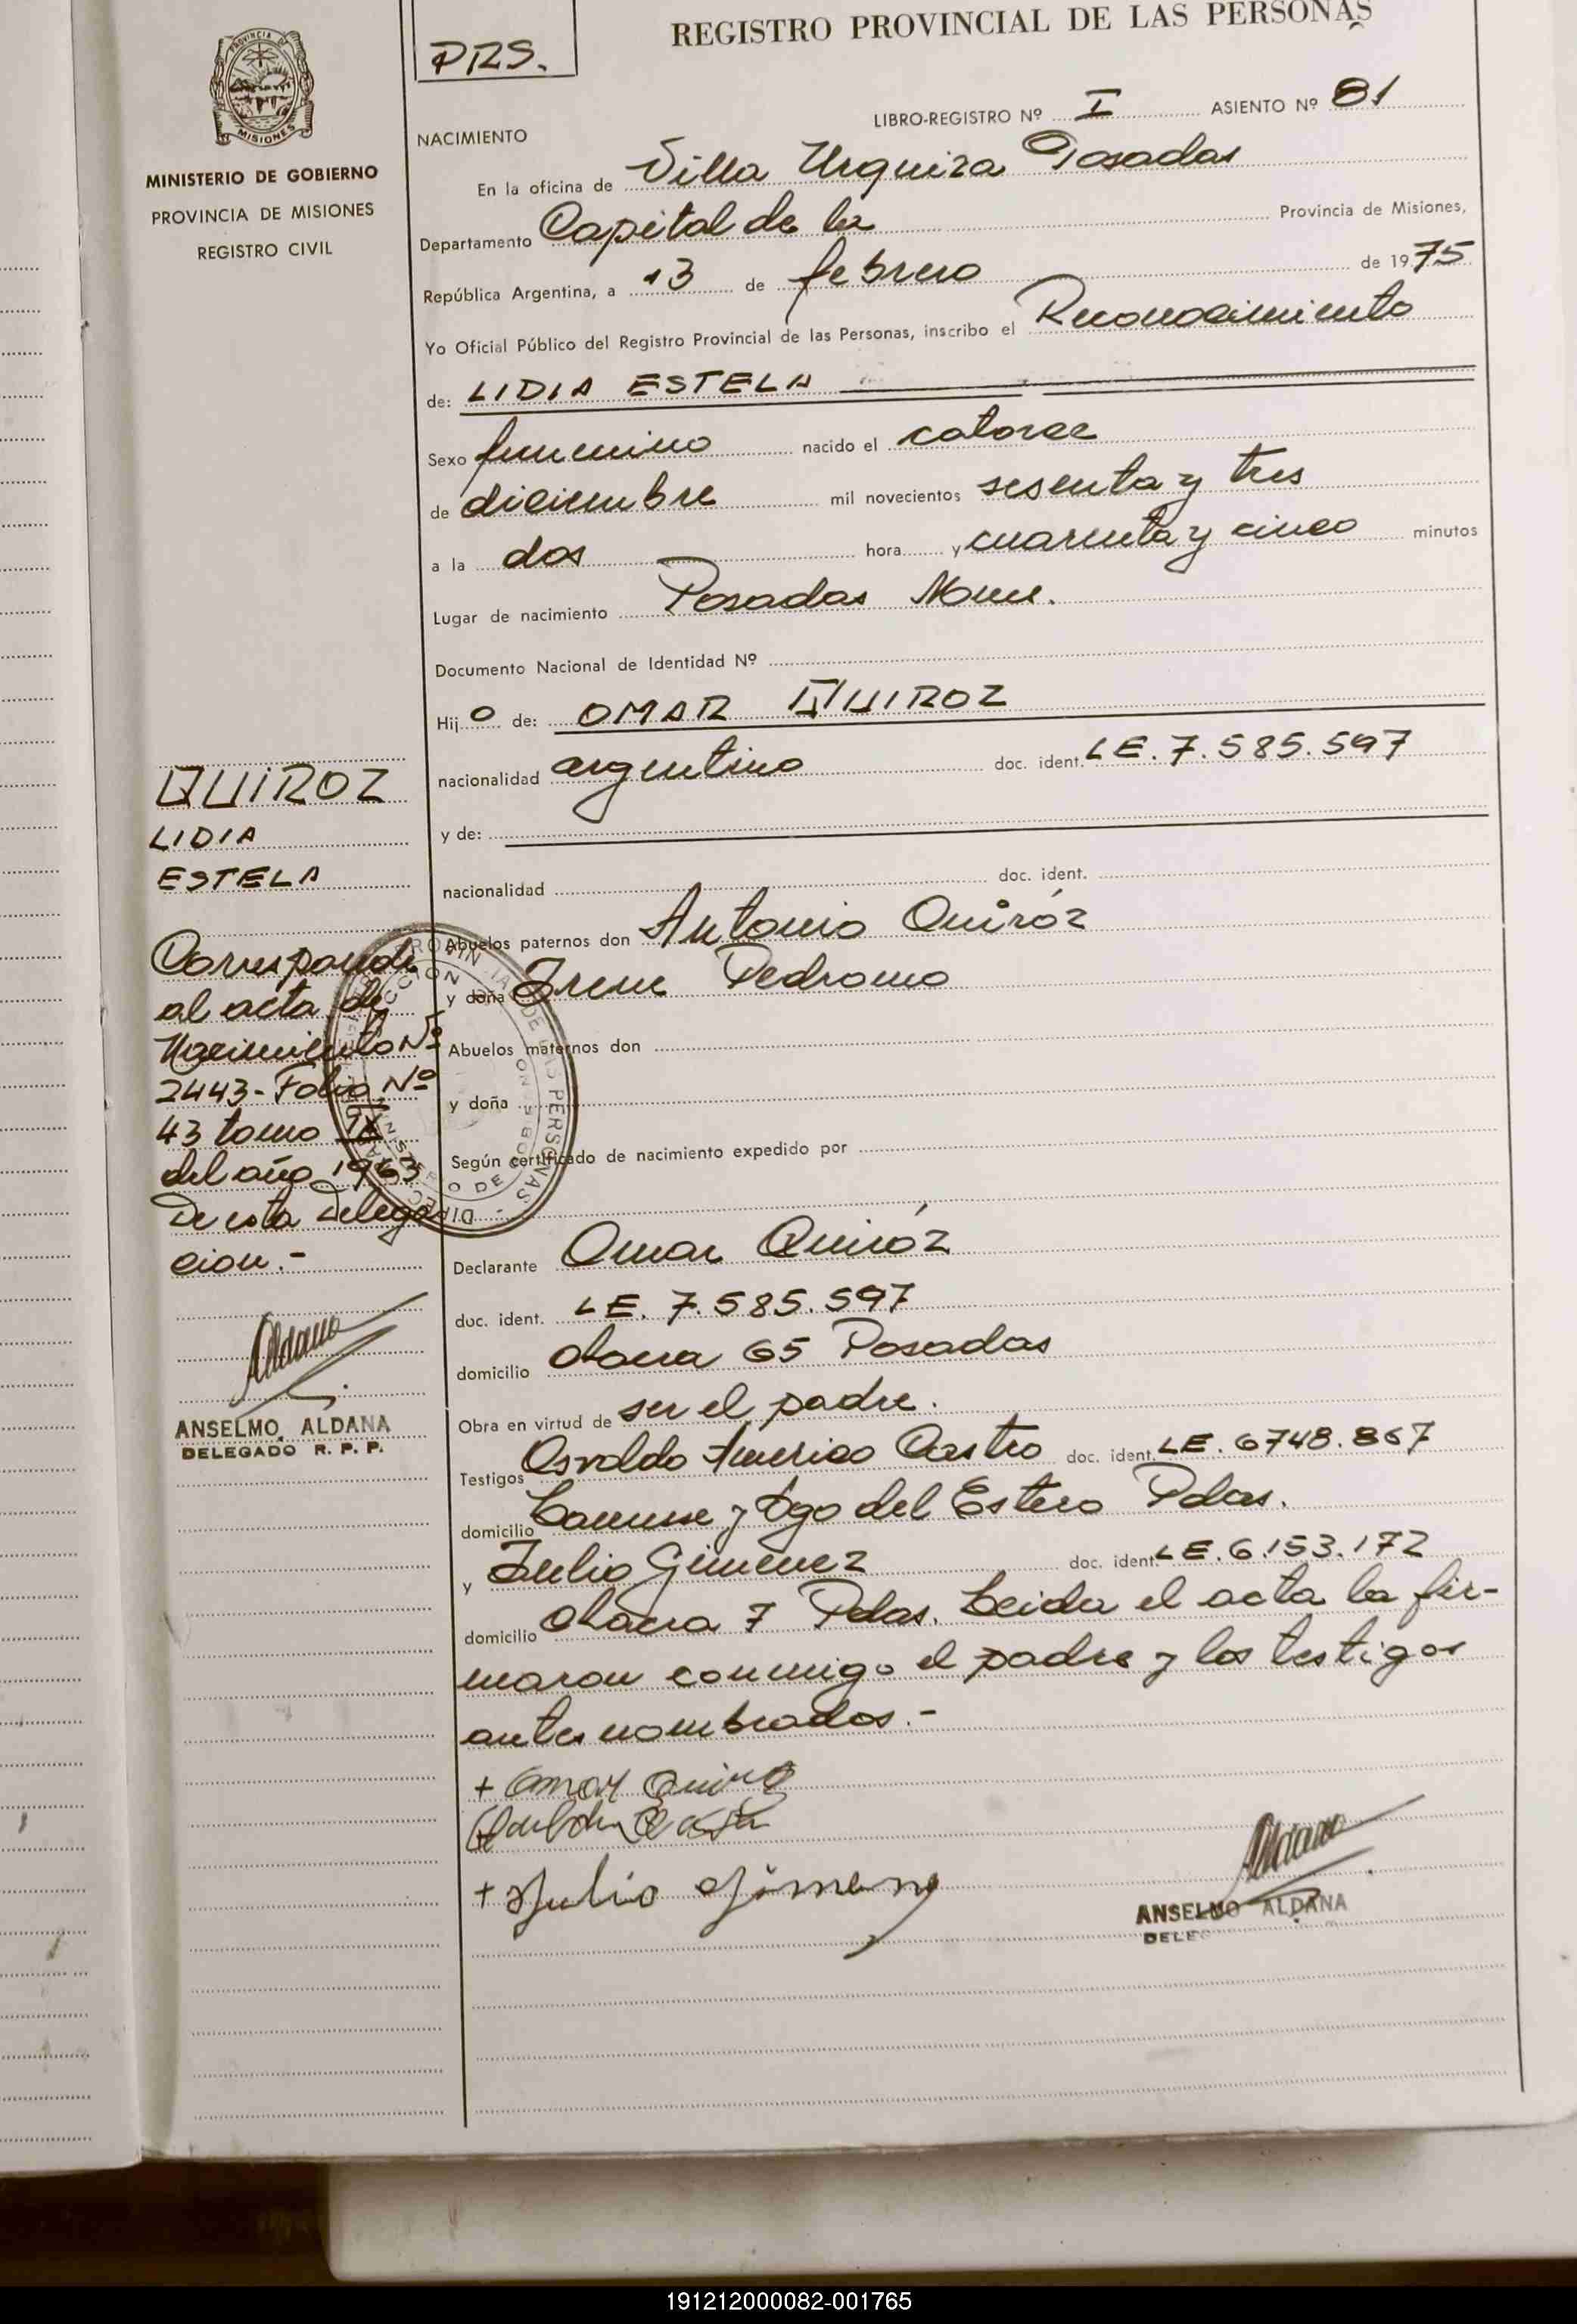 PRS.
REGISTRO PROVINCIAL DE LAS PERSONAS
LIBRO-REGISTRO Nº I ASIENTO Nº 81
NACIMIENTO
En la oficina de Villa Urquiza Posadas
Departamento Capital de la Provincia de Misiones,
República Argentina, a 13 de febrero de 1975
Yo Oficial Público del Registro Provincial de las Personas, inscribo el Reconocimiento
de: LIDIA ESTELA
Sexo femenino nacido el catorce
de diciembre mil novecientos sesenta y tres
a la dos hora y cuarenta y cinco minutos
Lugar de nacimiento Posadas Mnes.
Documento Nacional de Identidad Nº
Hij o de: OMAR QUIROZ
nacionalidad argentino doc. ident. LE. 7.585.597
y de:
nacionalidad doc. ident.
Abuelos paternos don Antonio Quiróz
y doña Irene Pedrozo
Abuelos maternos don
y doña
Según certificado de nacimiento expedido por
Declarante Omar Quiróz
doc. ident. LE. 7.585.597
domicilio chacra 65 Posadas
Obra en virtud de ser el padre.
Testigos Osvaldo Américo Castro doc. ident. LE. 6748.867
domicilio y Sgo del Estero Pdas.
y Julio Gimenez doc. ident. LE. 6.153.172
domicilio chacra 7 Pdas. Leida el acta la fir-
maron conmigo el padre y los testigos
antes nombrados.-
+ Omar Quiroz
+ Julio Gimenez
Aldana
ANSELMO ALDANA
DELE
PROVINCIA DE
MISIONES
MINISTERIO DE GOBIERNO
PROVINCIA DE MISIONES
REGISTRO CIVIL
QUIROZ
LIDIA
ESTELA
Corresponde
al acta de
Nacimiento Nº
2443-Folio Nº
43 tomo IX
del año 1963
De esta Delega
cion.-
Aldana
ANSELMO ALDANA
DELEGADO R. P. P.
191212000082-001765